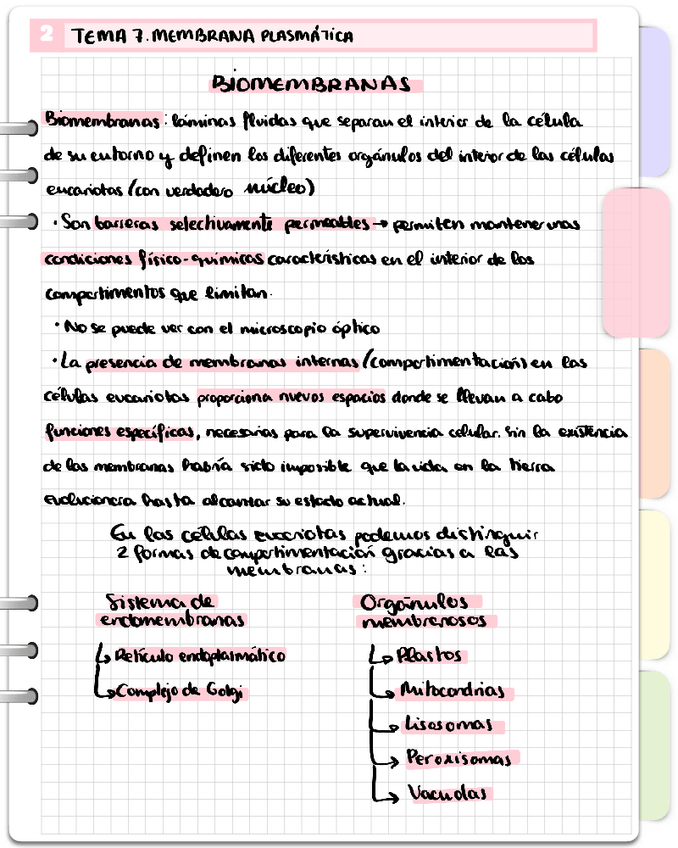 2 TEMA 7. MEMBRANA PLASMÁTICA
BIOMEMBRANAS
Biomembranas: láminas fluidas que separan el interior de la célula
de su entorno y definen los diferentes orgánulos del interior de las células
eucariotas (con verdadero núcleo)
· Son barreras selectivamente permeables → permiten mantener unas
condiciones físico-químicas características en el interior de los
compartimentos que limitan.
· No se puede ver con el microscopio óptico
· La presencia de membranas internas (compartimentación) en las
células eucariotas proporciona nuevos espacios donde se llevan a cabo
funciones específicas, necesarias para la supervivencia celular. Sin la existencia
de las membranas habría sido imposible que la vida en la tierra
evolucionara hasta alcanzar su estado actual.
En las células eucariotas podemos distinguir
2 formas de compartimentación gracias a las
membranas:
Sistema de
endomembranas
↳ Retículo endoplasmático
↳ Complejo de Golgi
Orgánulos
membranosos
↳ Plastos
↳ Mitocondrias
↳ Lisosomas
↳ Peroxisomas
↳ Vacuolas